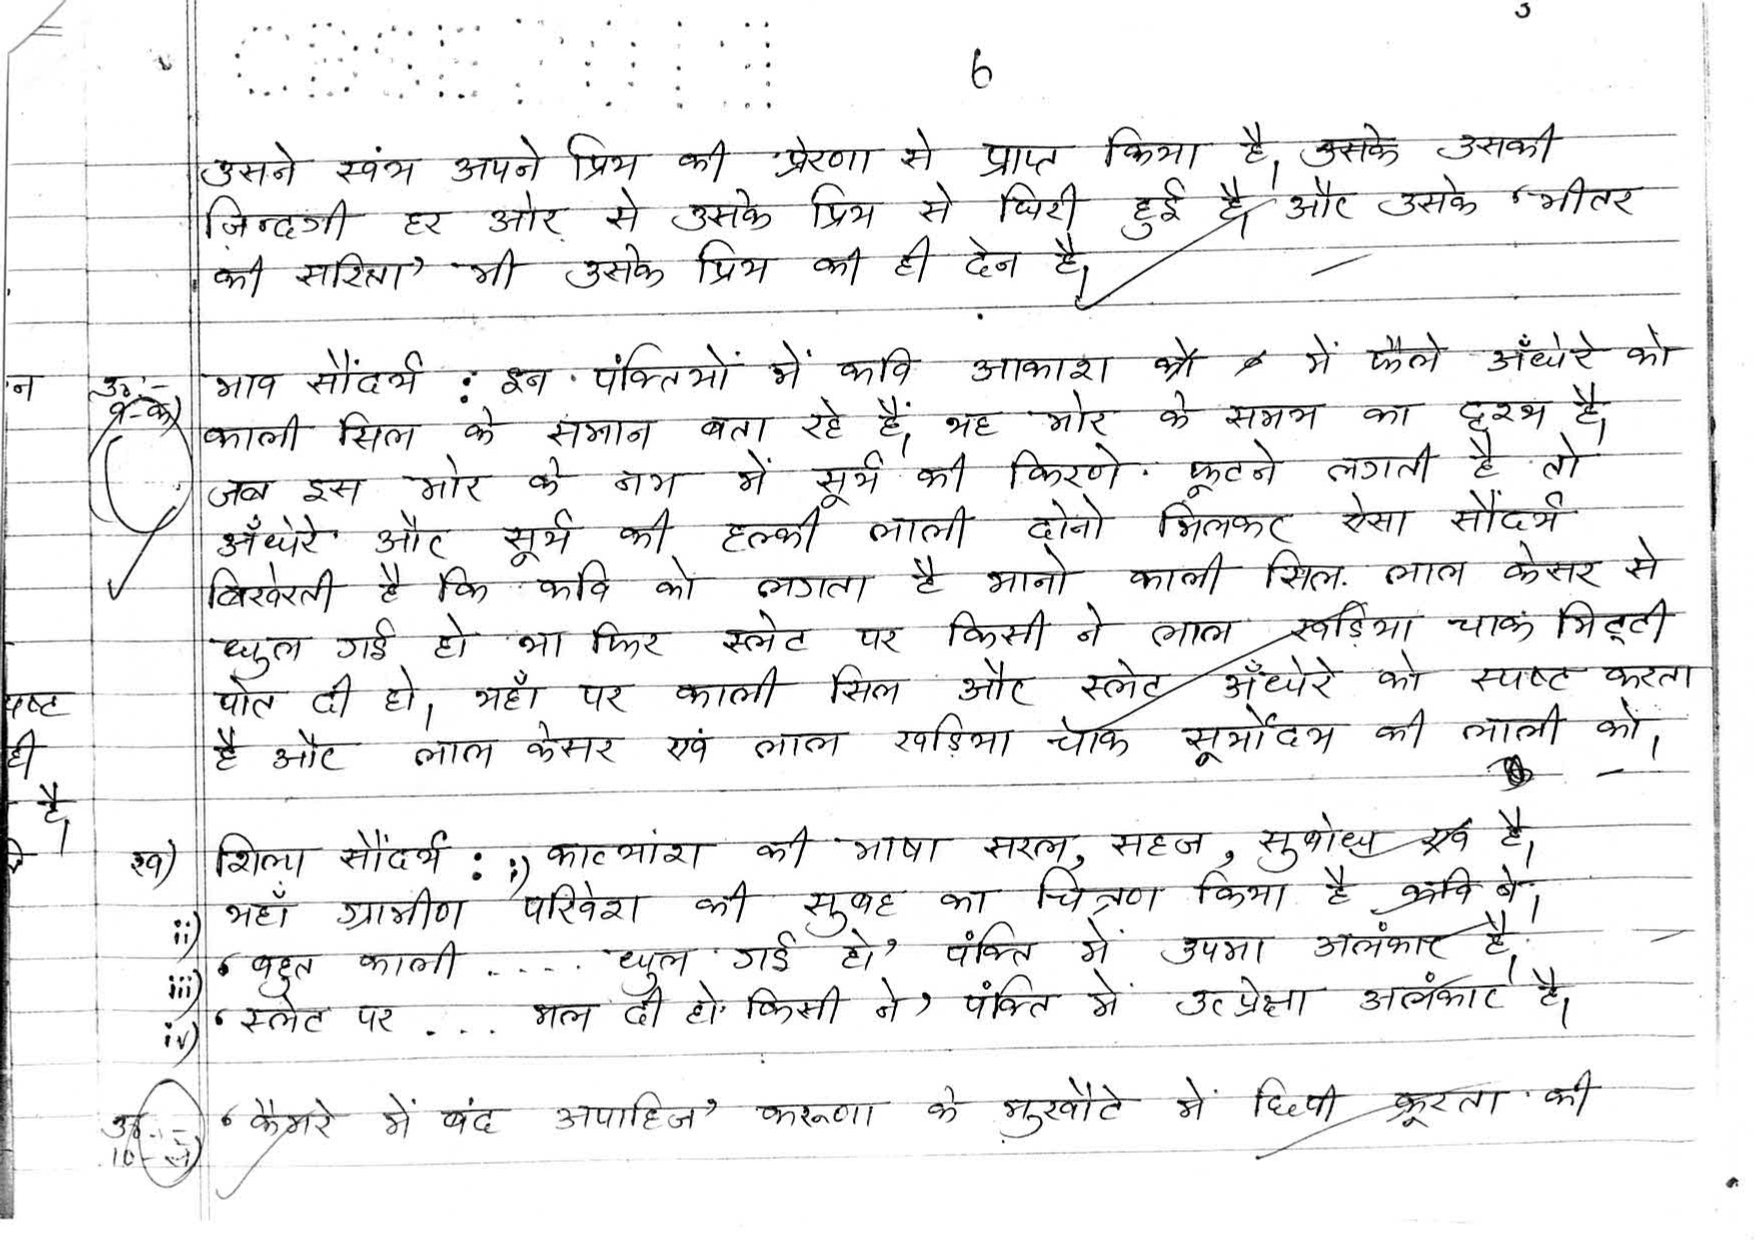 CBSE2011
6
उसने स्वंय अपने प्रिय की प्रेरणा से प्राप्त किया है, उसके उसकी
ज़िन्दगी हर ओर से उसके प्रिय से घिरी हुई है और उसके 'भीतर
की सरिता' भी उसके प्रिय की ही देन है।
न
उ०:-
9-क)
भाव सौंदर्य : इन पंक्तियों में कवि आकाश में फैले अँधेरे को
काली सिल के समान बता रहे हैं, यह भोर के समय का दृश्य है,
जब इस भोर के नभ में सूर्य की किरणे फूटने लगती है तो
अँधेरे और सूर्य की हल्की लाली दोनो मिलकर ऐसा सौंदर्य
बिखेरती है कि कवि को लगता है मानो काली सिल लाल केसर से
धुल गई हो या फिर स्लेट पर किसी ने लाल खड़िया चाक मिट्टी
ष्पष्ट
पोत दी हो, यहाँ पर काली सिल और स्लेट अँधेरे को स्पष्ट करता
ही
है और लाल केसर एवं लाल खड़िया चाक सूर्योदय की लाली को।
है,
ख) शिल्प सौंदर्य : i) काव्यांश की भाषा सरल, सहज, सुबोध एवं है,
ii) यहाँ ग्रामीण परिवेश की सुबह का चित्रण किया है कवि ने।
iii) 'बहुत काली ..... धुल गई हो' पंक्ति में उपमा अलंकार है,
iv) 'स्लेट पर ... मल दी हो किसी ने' पंक्ति में उत्प्रेक्षा अलंकार है,
उ०:-
10-
'कैमरे में बंद अपाहिज' करूणा के मुखौटे में छिपी क्रूरता की